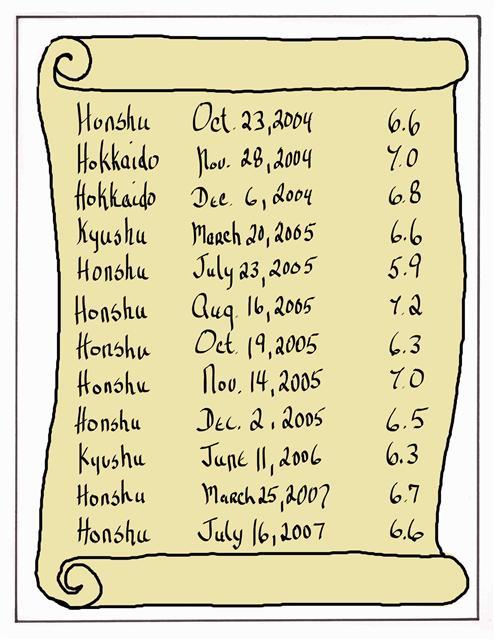 Honshu Oct. 23, 2004 6.6
Hokkaido Nov. 28, 2004 7.0
Hokkaido Dec. 6, 2004 6.8
Kyushu March 20, 2005 6.6
Honshu July 23, 2005 5.9
Honshu Aug. 16, 2005 7.2
Honshu Oct. 19, 2005 6.3
Honshu Nov. 14, 2005 7.0
Honshu Dec. 2, 2005 6.5
Kyushu June 11, 2006 6.3
Honshu March 25, 2007 6.7
Honshu July 16, 2007 6.6